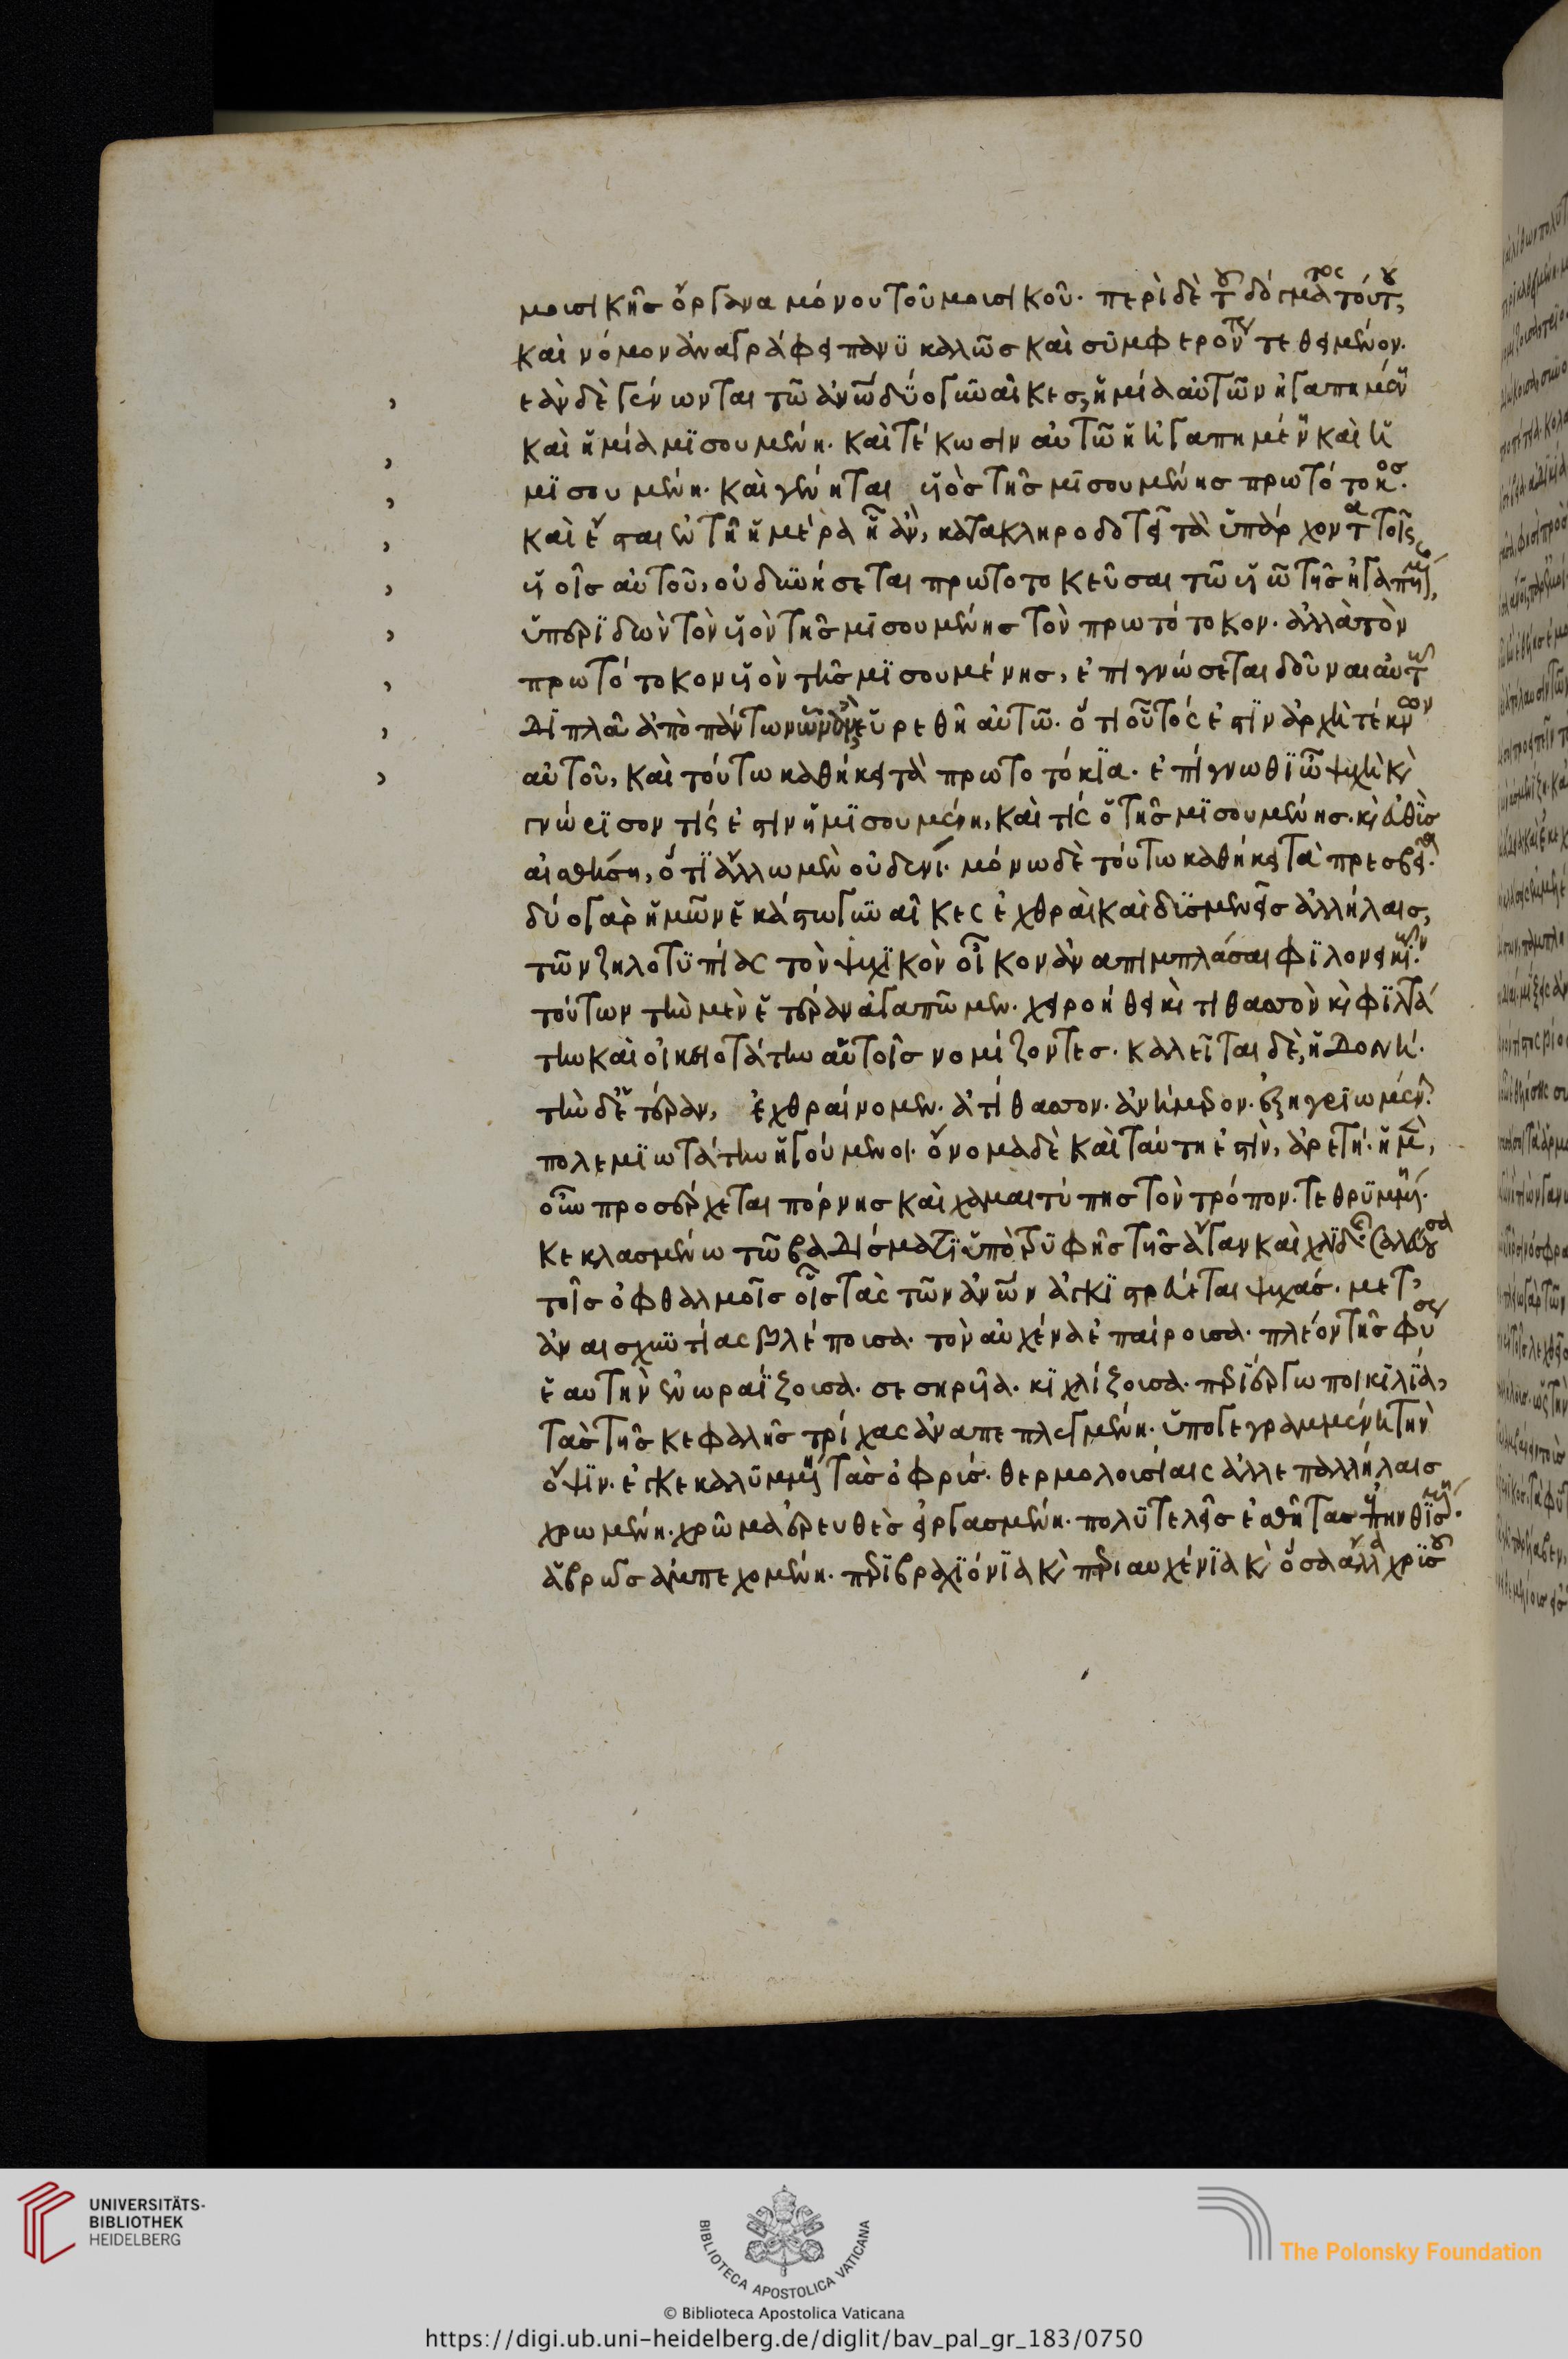 μουσικῆς ὄργανα μόνου τοῦ μουσικοῦ. περὶ δὲ τοῦ δόγματος τούτου,
καὶ νόμον ἀναγράφει πανϋ καλῶς καὶ συμφερόντως τεθειμένον.
ἐὰν δὲ γένωνται τῶ ἀνῶ δύο γυναῖκες, ἡ μία αὐτῶν ἠγαπημένη
καὶ ἡ μία μϊσουμένη. καὶ τέκωσιν αὐτῶ ἡ ἠγαπημένη καὶ ἡ
μϊσουμένη. καὶ γένηται υἱὸς τῆς μϊσουμένης πρωτότοκος.
καὶ ἔσται ἐν τῆ ἡμέρα ᾗ ἂν, κατακληροδοτεῖ τὰ ὑπάρχοντα τοῖς
υἱοῖς αὐτοῦ, οὐ δυνήσεται πρωτοτοκεῦσαι τῶ υἱῶ τῆς ἠγαπημένης,
ὑπερϊδὼν τὸν υἱὸν τῆς μϊσουμένης τὸν πρωτότοκον. ἀλλὰ τὸν
πρωτότοκον υἱὸν τῆς μϊσουμένης, ἐπιγνώσεται δοῦναι αὐτῶ
διπλᾶ ἀπὸ πάντων ὧν ἂν εὑρεθῆ αὐτῶ. ὅτι οὗτός ἐστϊν ἀρχὴ τέκνων
αὐτοῦ, καὶ τούτω καθήκει τὰ πρωτοτόκϊα. ἐπίγνωθϊ ὦ ψυχὴ κὶ
γνώρϊσον τίς ἐστιν ἡ μϊσουμένη, καὶ τίς ὁ τῆς μϊσουμένης. κὶ εὐθὺς
αἰσθήση, ὅτϊ ἄλλω μὲν οὐδενί. μόνω δὲ τούτω καθήκει τὰ πρεσβεῖα.
δύο γὰρ ἡμῶν ἑκάστω γυναῖκες ἐχθραὶ καὶ δϋσμενεῖς ἀλλήλαις,
τῶν ζηλοτϋπίας τὸν ψυχϊκὸν οἶκον ἀναπιμπλάσαι φϊλονεικϊῶν.
τούτων τὴν μὲν ἑτέραν ἀγαπῶμεν. χειροήθει κὶ τιθασσὸν κὶ φϊλτά
την καὶ οἰκειοτάτην αὑτοῖς νομίζοντες. καλεῖται δὲ, ἡδονή.
τὴν δὲ ἑτέραν, ἐχθραίνομεν. ἀτίθασσον. ἀνήμερον. ἐξηγρϊωμένην.
πολεμϊωτάτην ἡγούμενοι. ὄνομα δὲ καὶ ταύτη ἐστὶν, ἀρετή. ἡ μὲν,
οὖν προσέρχεται πόρνης καὶ χαμαιτύπης τὸν τρόπον. τεθρϋμμένη.
κεκλασμένω τῶ βαδίσματϊ ὑπὸ τρϋφῆς τῆς ἄγαν καὶ χλϊδῆς. σαλεύουσα
τοῖς ὀφθαλμοῖς οἷς τὰς τῶν ἀνῶν ἀγκϊστρεύεται ψυχάς. μετ,
ἀναισχυντίας βλέπουσα. τὸν αὐχένα ἐπαίρουσα. πλέον τῆς φύσεως
ἑαυτὴν ἐνωραΐζουσα. σεσηρυῖα. κϊχλίζουσα. περϊέργω ποικϊλϊα,
τὰς τῆς κεφαλῆς τρίχας ἀναπεπλεγμένη. ὑπογεγραμμένη τὴν
ὄψϊν. ἐγκεκαλϋμμένη τὰς ὀφρύς. θερμολουσίαις ἀλλεπαλλήλαις
χρωμένη. χρῶμα ἐρευθὲς εἰργασμένη. πολϋτελεῖς ἐσθῆτας ἐπηνθϊσμένη.
ἁβρῶς ἀμπεχομένη. περϊβραχϊόνϊα κὶ περιαυχένϊα κὶ ὅσα ἄλλα χρϋσοῦ
UNIVERSITÄTS-
BIBLIOTHEK
HEIDELBERG
BIBLIOTECA APOSTOLICA VATICANA
The Polonsky Foundation
© Biblioteca Apostolica Vaticana
https://digi.ub.uni-heidelberg.de/diglit/bav_pal_gr_183/0750